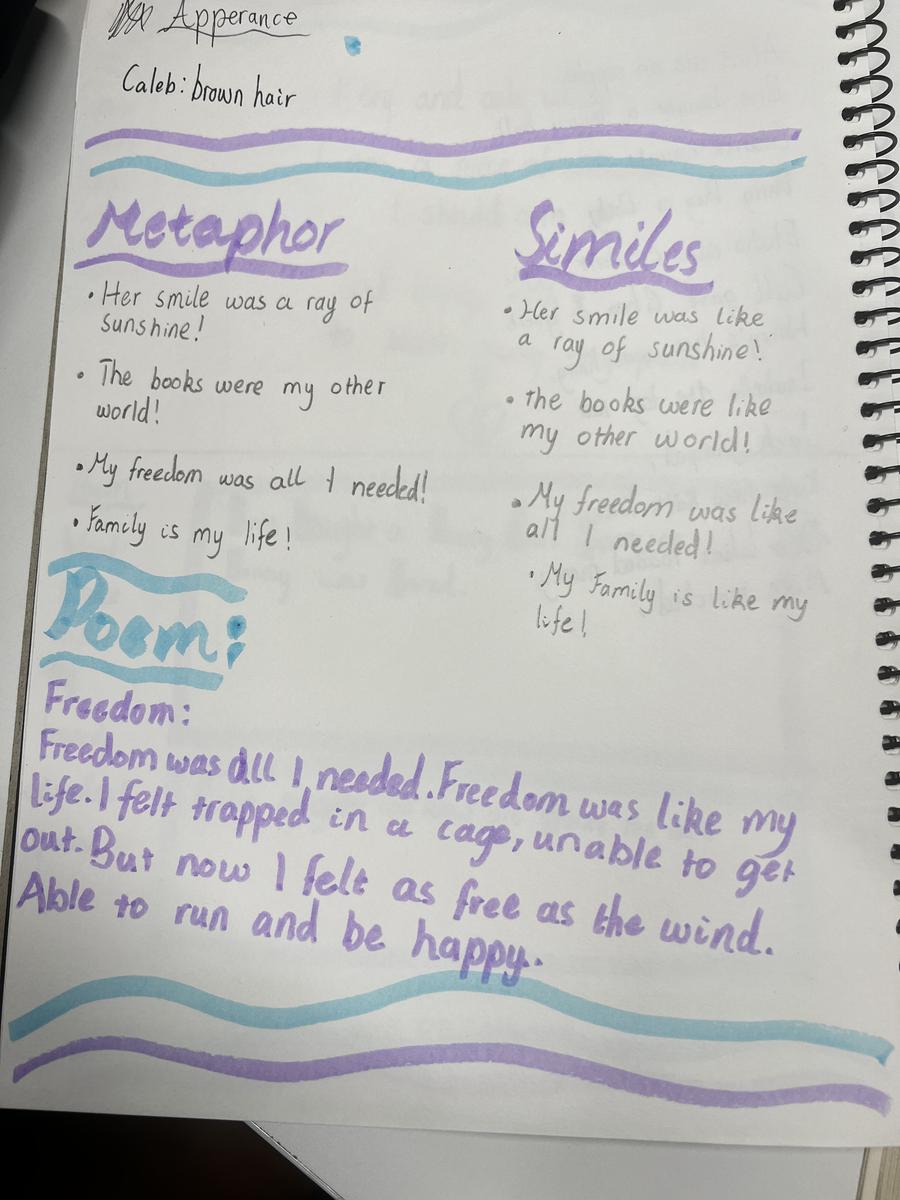 Apperance
Caleb: brown hair
Metaphor
• Her smile was a ray of
sunshine!
• The books were my other
world!
• My freedom was all I needed!
• Family is my life!
Similes
• Her smile was like
a ray of sunshine!
• the books were like
my other world!
• My freedom was like
all I needed!
• My Family is like my
life!
Poem:
Freedom:
Freedom was all I needed. Freedom was like my
life. I felt trapped in a cage, unable to get
out. But now I felt as free as the wind.
Able to run and be happy.